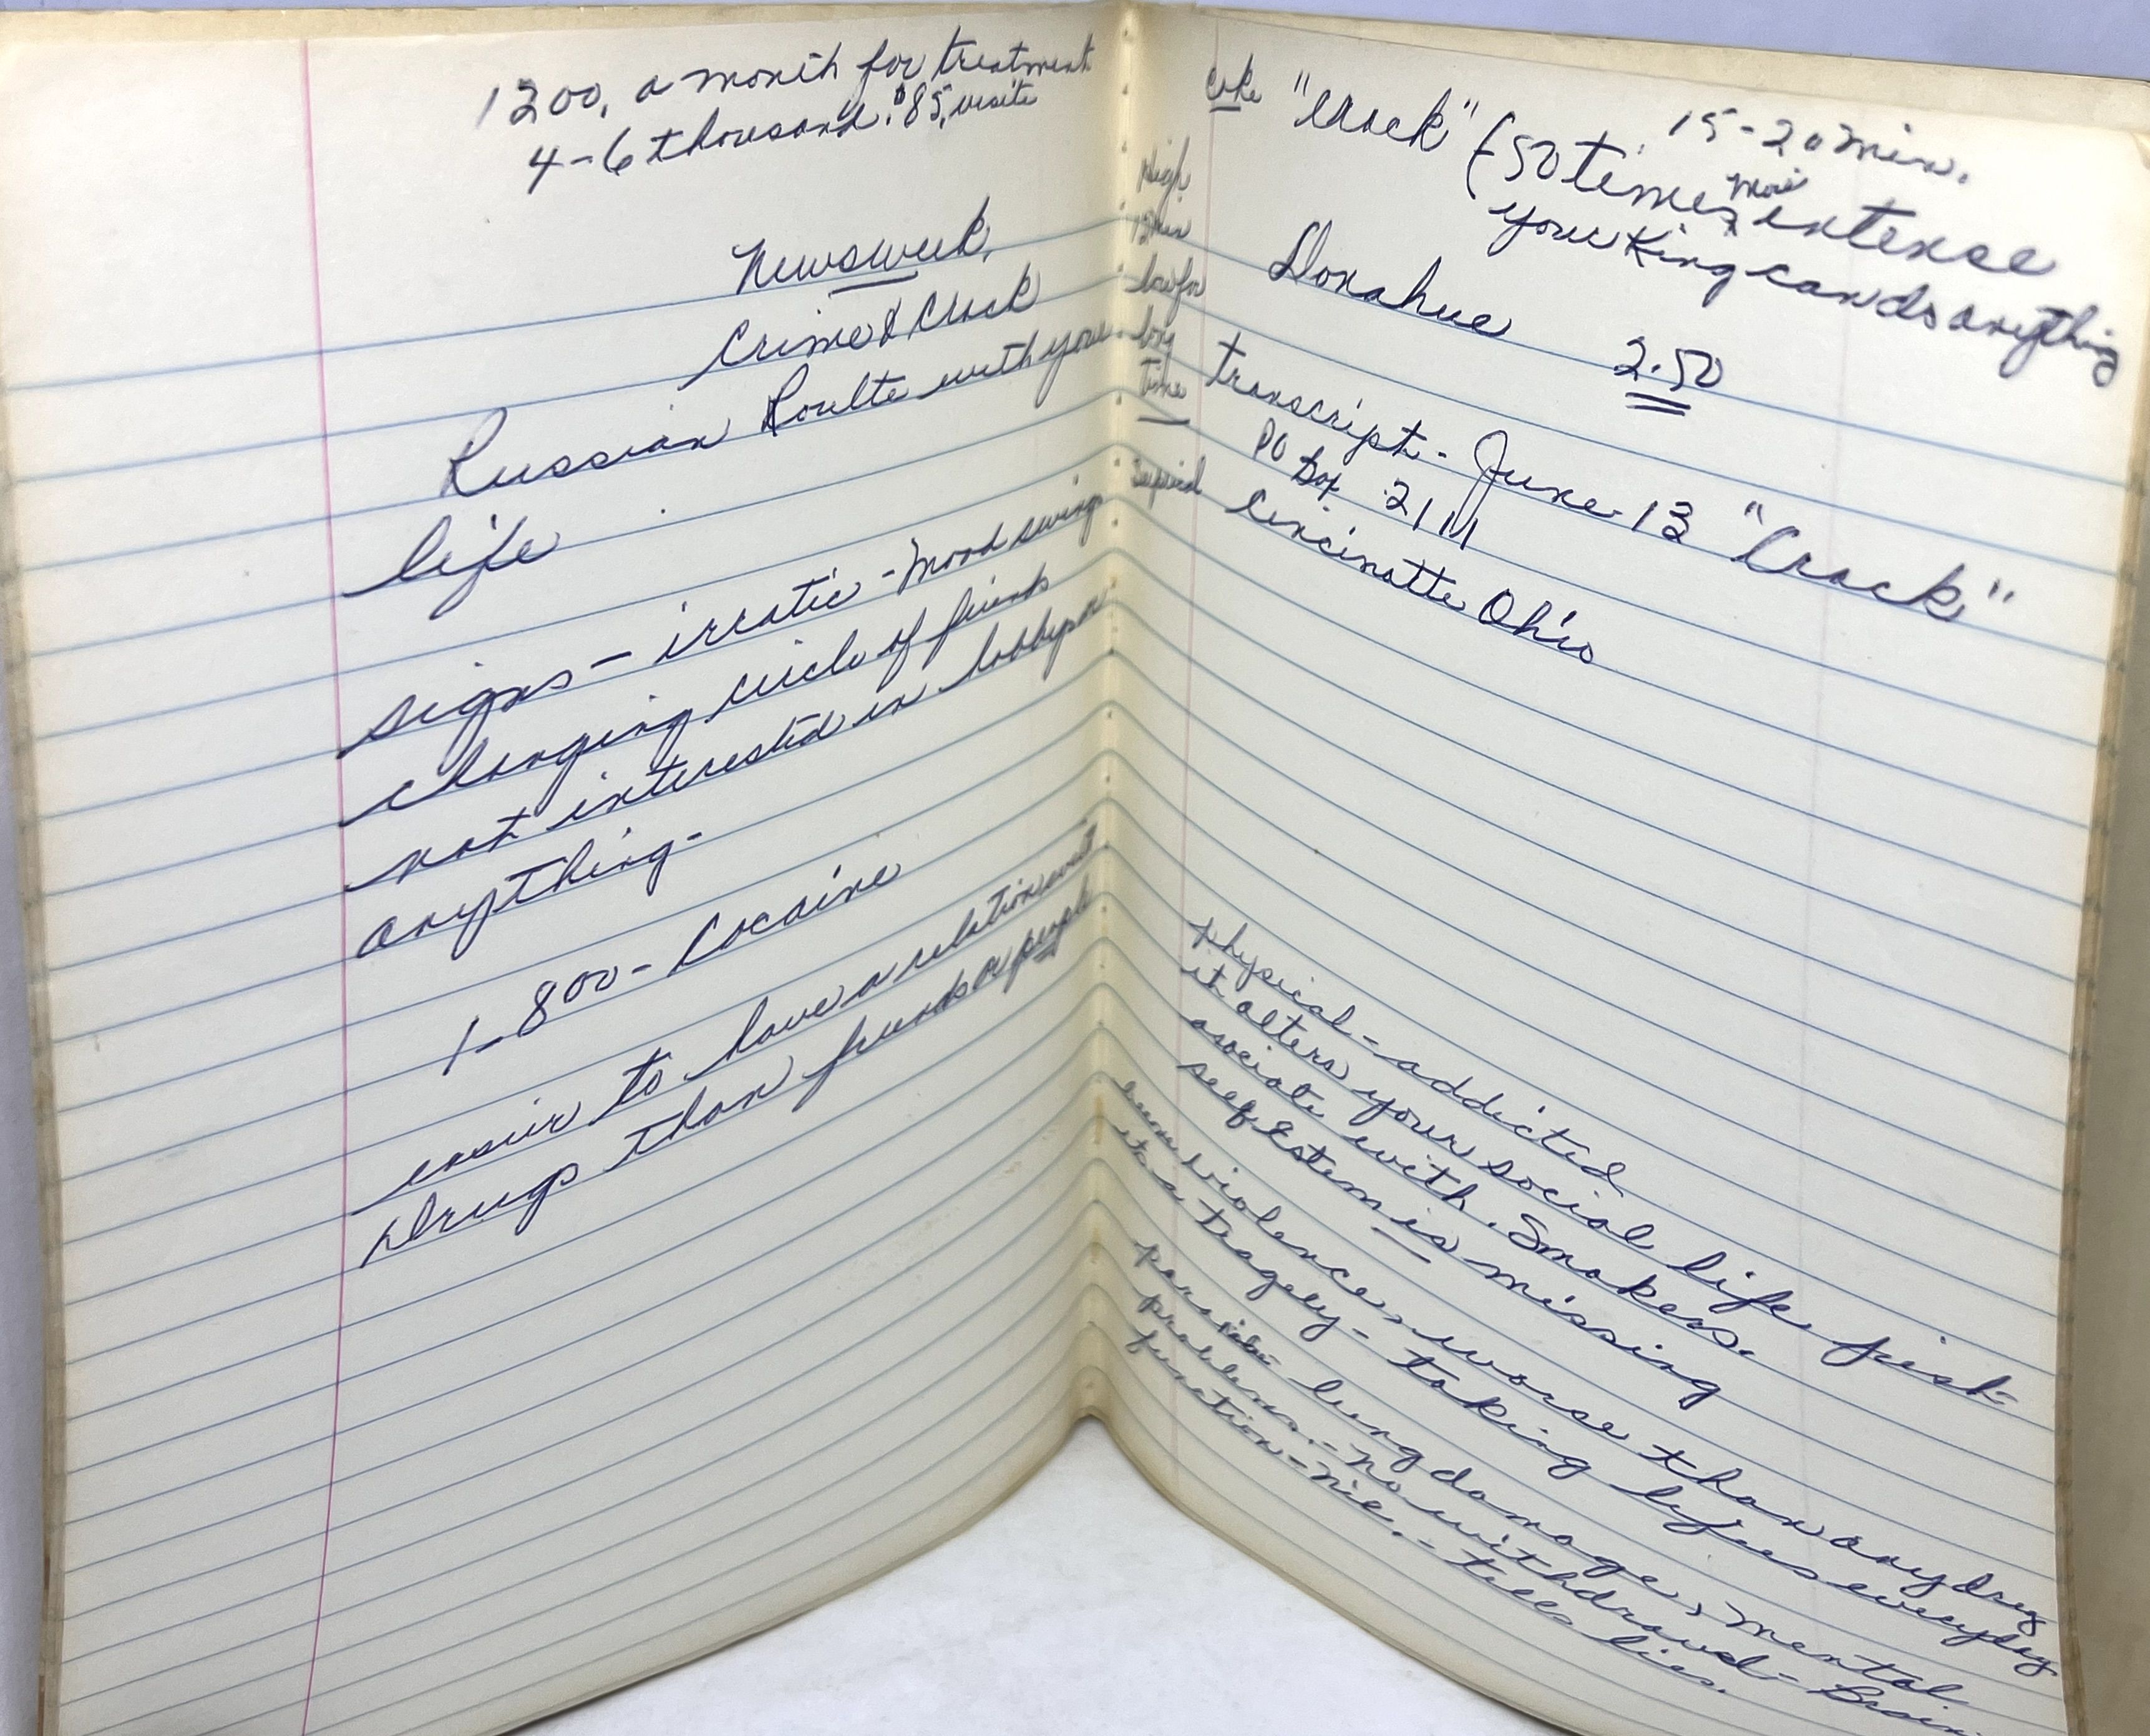 1200, a month for treatment
4-6 thousand. $85, visite
Newsweek,
Crime & Crack
Russian Roulte with your
life
signs - irratic - mood swings
changing circle of friends
not interested in hobbys or
anything -
1-800-Cocaine
easier to have a relation
Drugs than friends or people
Coke "Crack" (50 times more intense
15-20 min.
your King can do anything
High
15 min
low for
long
time
Donahue 2.50
transcript - June 13 "Crack"
PO Box 2111
Cincinatte Ohio
physical - addicted
it alters your social life first
asociate with. Smokers.
self Estem is missing
violence, worse than any drug
its a tragedy - taking lifes everyday
lung damage, mental
problems. - no withdrawl - Brain
function - nil. - tells lies.